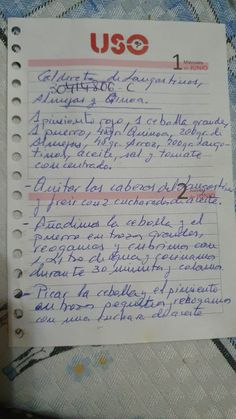 USO
1 Miércoles
JUNIO
Caldereta de Langostinos,
30414806-C
Almejas y Quinoa.
1 pimiento rojo, 1 cebolla grande,
1 puerro, 40gr. Quinoa, 200gr. de
Almejas, 40gr. Arroz, 200gr. Lango-
tinos, aceite, sal y tomate
concentrado.
- Quitar las cabezas de langostinos
y freir con 2 cucharadas de aceite.
2
- Añadimos la cebolla y el
puerro en trozos grandes,
rehogamos y cubrimos con
1,2 litro de agua y cocinamos
durante 30 minutos y colamos.
- Picar la cebolla y el pimiento
en trozos pequeños, rehogamos
con una cuchara de aceite